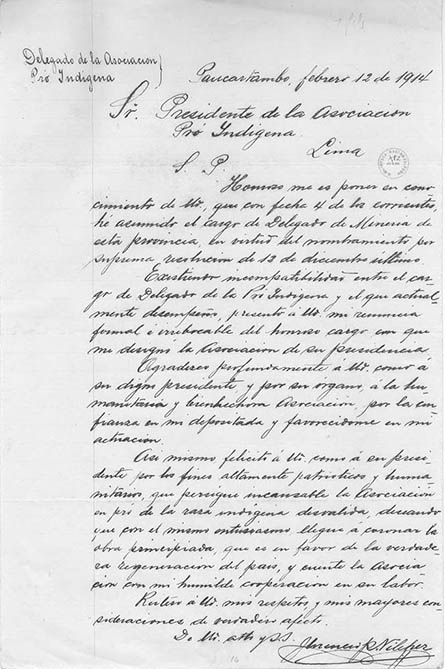 Delegado de la Asociacion
Pró Indígena
Paucartambo, febrero 12 de 1914
Sr. Presidente de la Asociacion
Pró Indígena.
Lima
S. P.
Honroso me es poner en cono-
cimiento de Ud, que con fecha 4 de los corrientes,
he asumido el cargo de Delegado de Mineria de
esta provincia, en virtud del nombramiento por
suprema resolucion de 12 de diciembre último.
Existiendo incompatibilidad entre el car-
go de Delegado de la Pró Indígena y el que actual-
mente desempeño, presento á Ud. mi renuncia
formal é irrebocable del honroso cargo con que
me designó la Asociacion de su presidencia.
Agradezco profundamente á Ud. como á
su digno presidente y por su órgano, á la hu-
manitaria y bienhechora Asociacion, por la con-
fianza en mi depositada y favorecidome en mi
actuacion.
Asi mismo felicito á Ud. como á su presi-
dente por los fines altamente patrióticos y huma-
nitarios, que persigue incansable la Asociacion
en pró de la raza indígena desvalida, deseando
que con el mismo entusiasmo llegue á coronar la
obra principiada, que es en favor de la verdade-
ra regeneracion del pais, y cuente la Asocia-
cion con mi humilde cooperacion en su labor.
Reitero á Ud. mis respetos y mis mayores con-
sideraciones de verdadero afecto.
De Ud. atto y S.S.